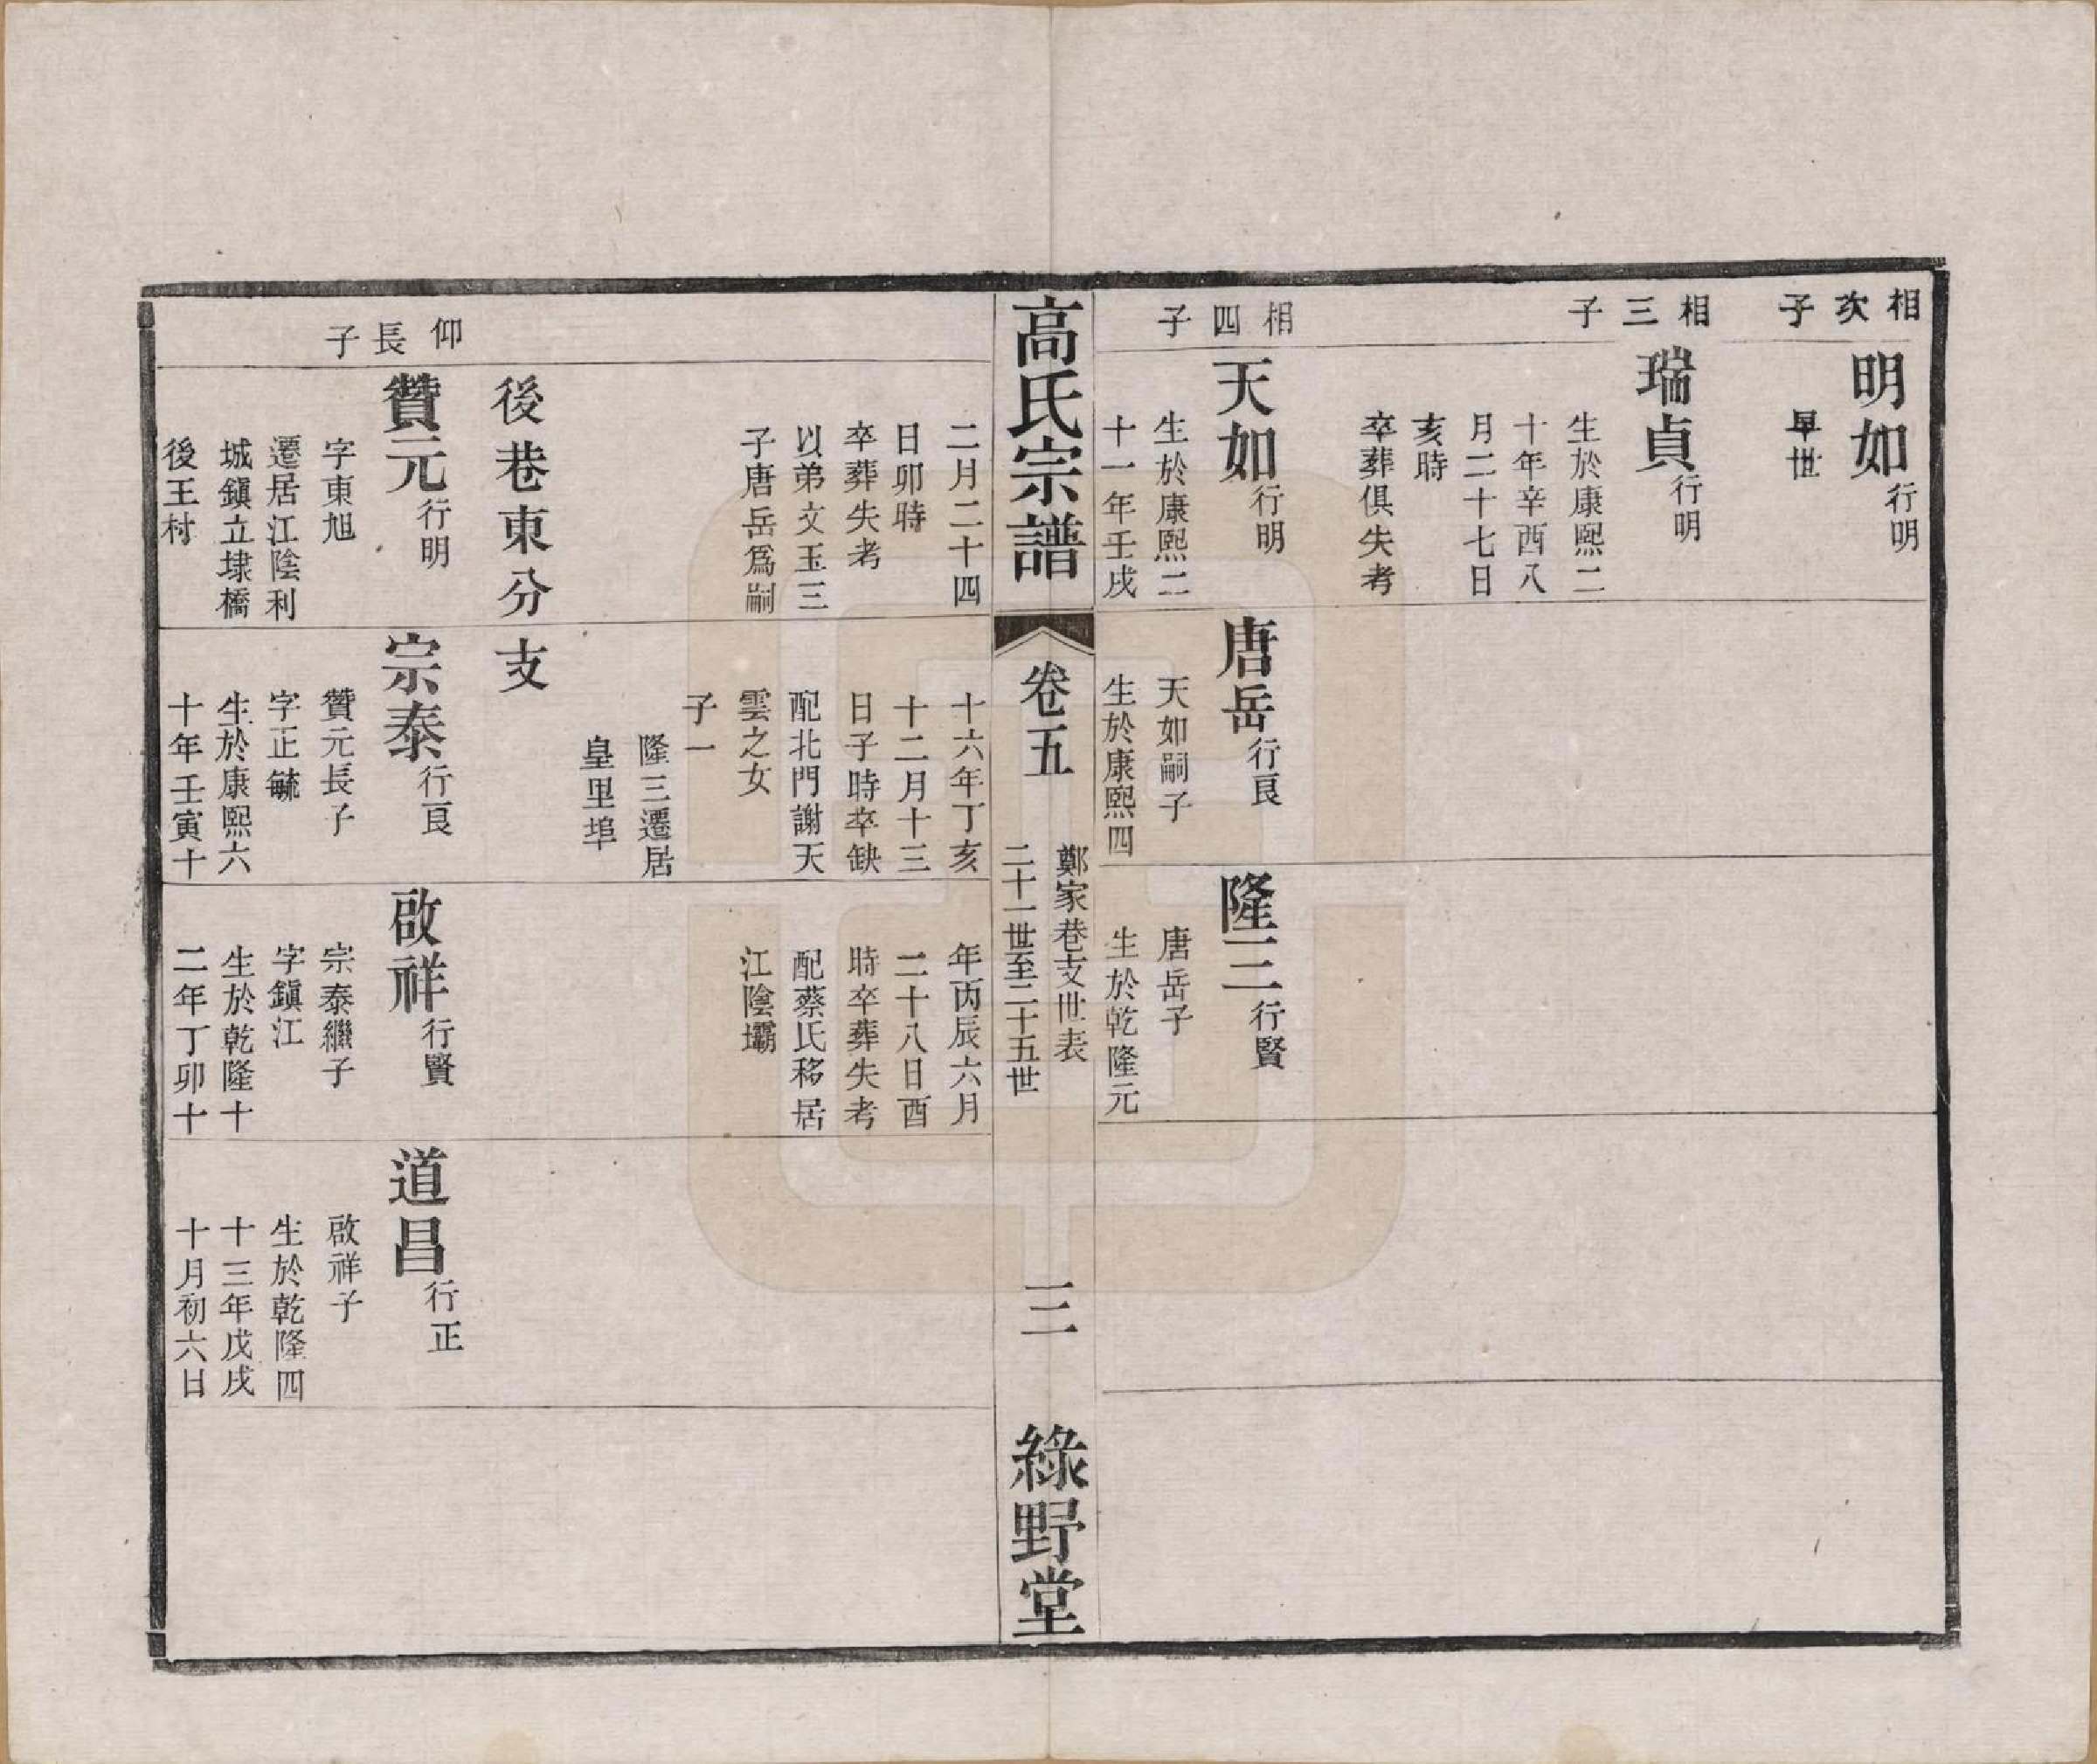 相次子
明如行明
早世
相三子
瑞貞行明
生於康熙二
十年辛酉八
月二十七日
亥時
卒葬俱失考
相四子
天如行明
生於康熙二
十一年壬戌
唐岳行良
天如嗣子
生於康熙四
隆三行賢
唐岳子
生於乾隆元
高氏宗譜
卷五
鄭家巷支世表
二十一世至二十五世
三
綠野堂
二月二十四
日卯時
卒葬失考
以弟文玉三
子唐岳為嗣
十六年丁亥
十二月十三
日子時卒缺
配北門謝天
雲之女
子一
隆三遷居
皇里埠
年丙辰六月
二十八日酉
時卒葬失考
配蔡氏移居
江陰壩
後巷東分支
仰長子
贊元行明
字東旭
遷居江陰利
城鎮立埭橋
後王村
宗泰行良
贊元長子
字正毓
生於康熙六
十年壬寅十
啟祥行賢
宗泰繼子
字鎮江
生於乾隆十
二年丁卯十
道昌行正
啟祥子
生於乾隆四
十三年戊戌
十月初六日